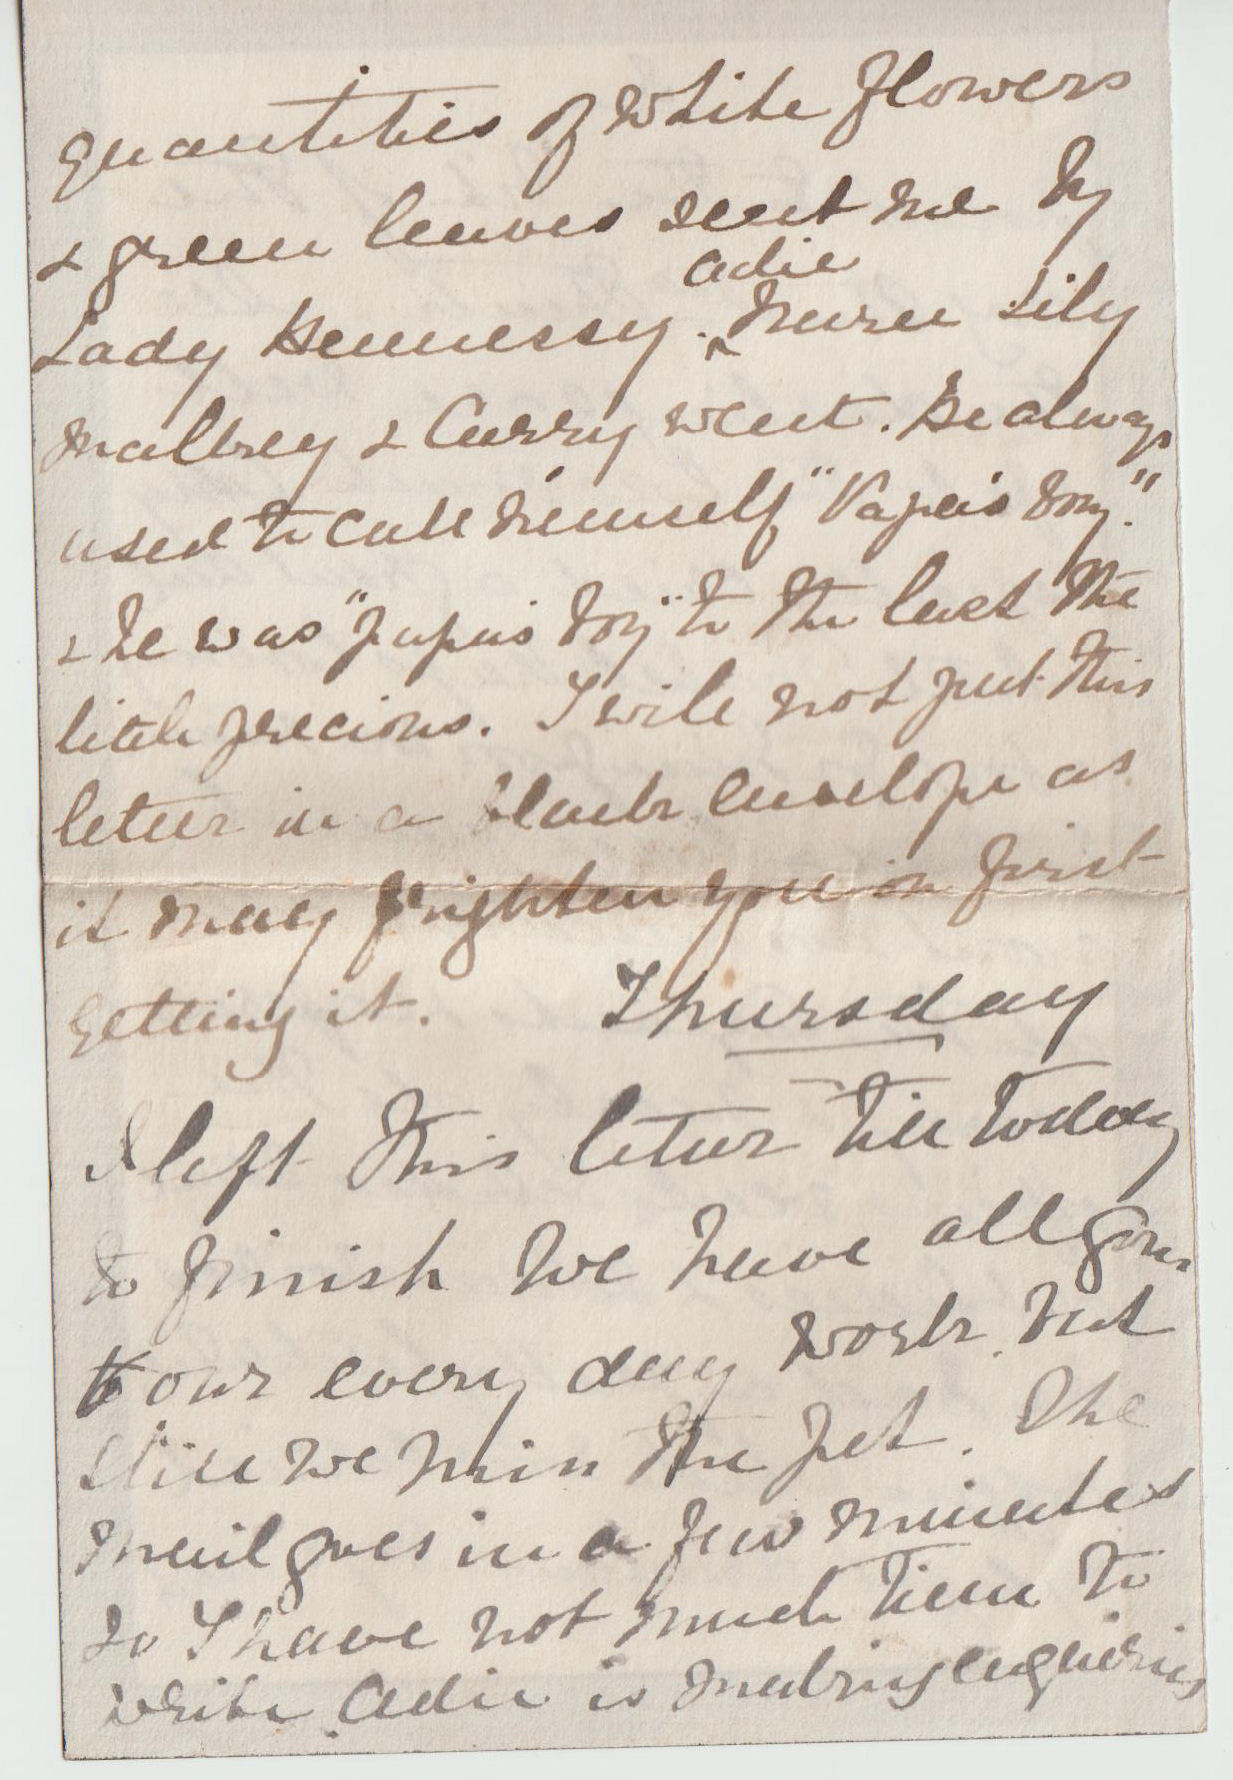 quantities of white flowers
& green leaves sent me by
Lady Hennessy. adie Lily
& Curry went. He always
used to call himself "Papa's boy".
& he was "papa's boy" to the last the
little precious. I will not put this
letter in a black envelope as
it may frighten you on first
getting it. Thursday
I left this letter till today
to finish we have all gone
to our every day work, but
still we miss the pet. The
mail goes in a few minutes
so I have not much time to
write. Adie is making enquiries